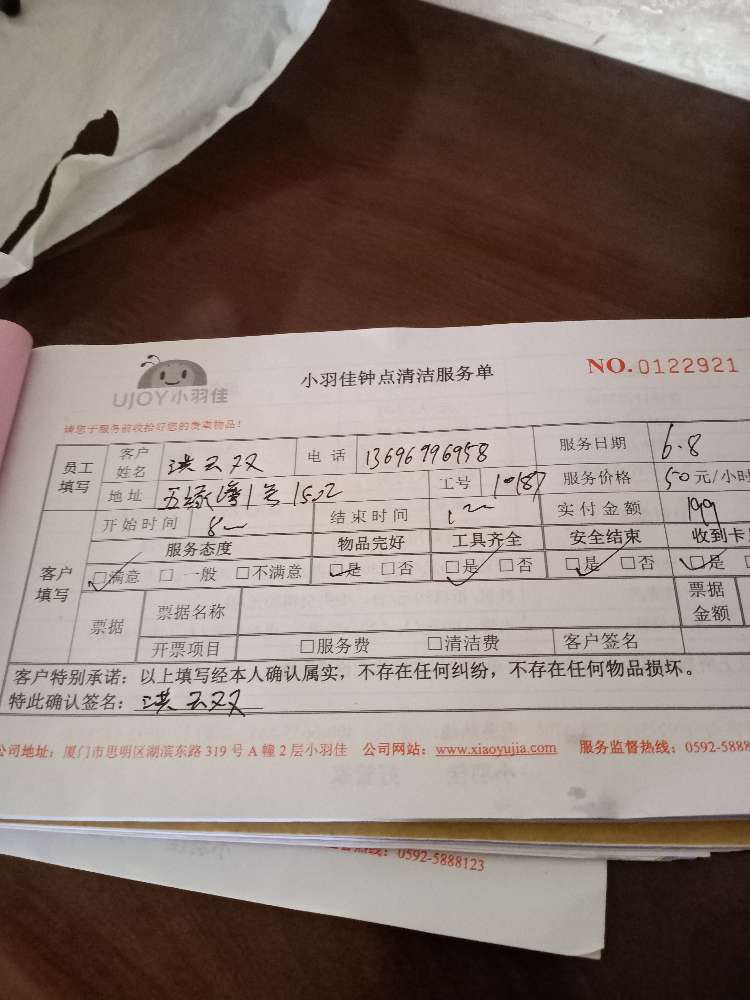 UJOY小羽佳
小羽佳钟点清洁服务单
NO.0122921
请您于服务前收拾好您的贵重物品!
员工填写 客户姓名 洪云双 电话 13696996958 服务日期 6.8
地址 五缘湾1号1502 工号 10187 服务价格 50元/小时
客户填写 开始时间 8 结束时间 12 实付金额 199
服务态度 物品完好 工具齐全 安全结束 收到卡
□满意 □一般 □不满意 □是 □否 □是 □否 □是 □否 □是
票据 票据名称 票据金额
开票项目 □服务费 □清洁费 客户签名
客户特别承诺:以上填写经本人确认属实,不存在任何纠纷,不存在任何物品损坏。
特此确认签名:洪云双
公司地址:厦门市思明区湖滨东路319号A幢2层小羽佳 公司网站:www.xiaoyujia.com 服务监督热线:0592-5888
热线:0592-5888123